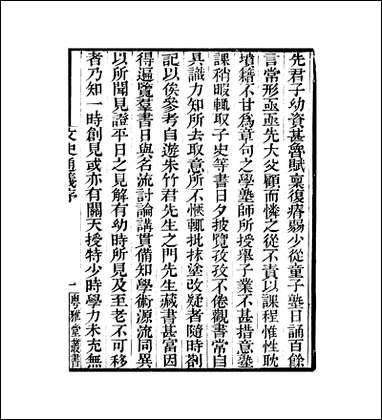 先君子幼資甚魯賦稟復瘠弱少從童子塾日誦百餘
言常形亟亟先大父顧而憐之從不責以課程惟性耽
墳籍不甘為章句之學塾師所授舉子業不甚措意塾
課稍暇輒取子史等書日夕披覽孜孜不倦觀書常自
具識力知所去取意所不愜輒批抹塗改疑者隨時劄
記以俟參考自遊朱竹君先生之門先生藏書甚富因
得遍覽羣書日與名流討論講貫備知學術源流同異
以所聞見證平日之見解有幼時所見及至老不可移
者乃知一時創見或亦有關天授特少時學力未充無
文史通義序
一
粵雅堂叢書